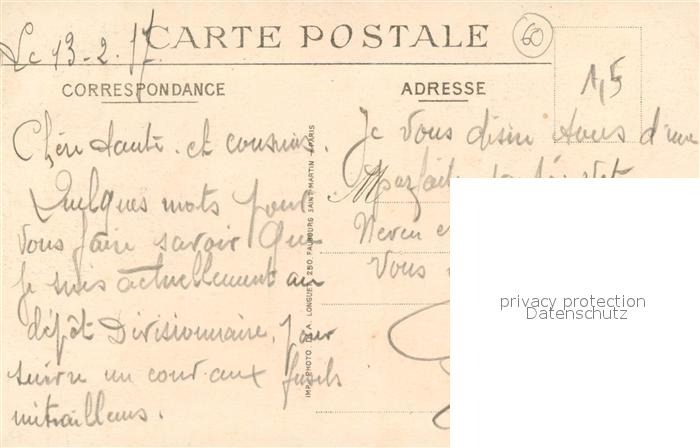 Le 13-2.17
CARTE POSTALE
60
1,5
CORRESPONDANCE
ADRESSE
Chère tante et cousins.
Quelques mots pour
vous faire savoir que
je suis actuellement au
dépôt Divisionnaire, pour
suivre un cour aux fusils
mitrailleurs.
IMP. PHOTO. A. LONGUET 250 FAUBOURG SAINT-MARTIN PARIS
Je vous désire tous d'une
parfaite santé et
Neveu
Vous
privacy protection
Datenschutz